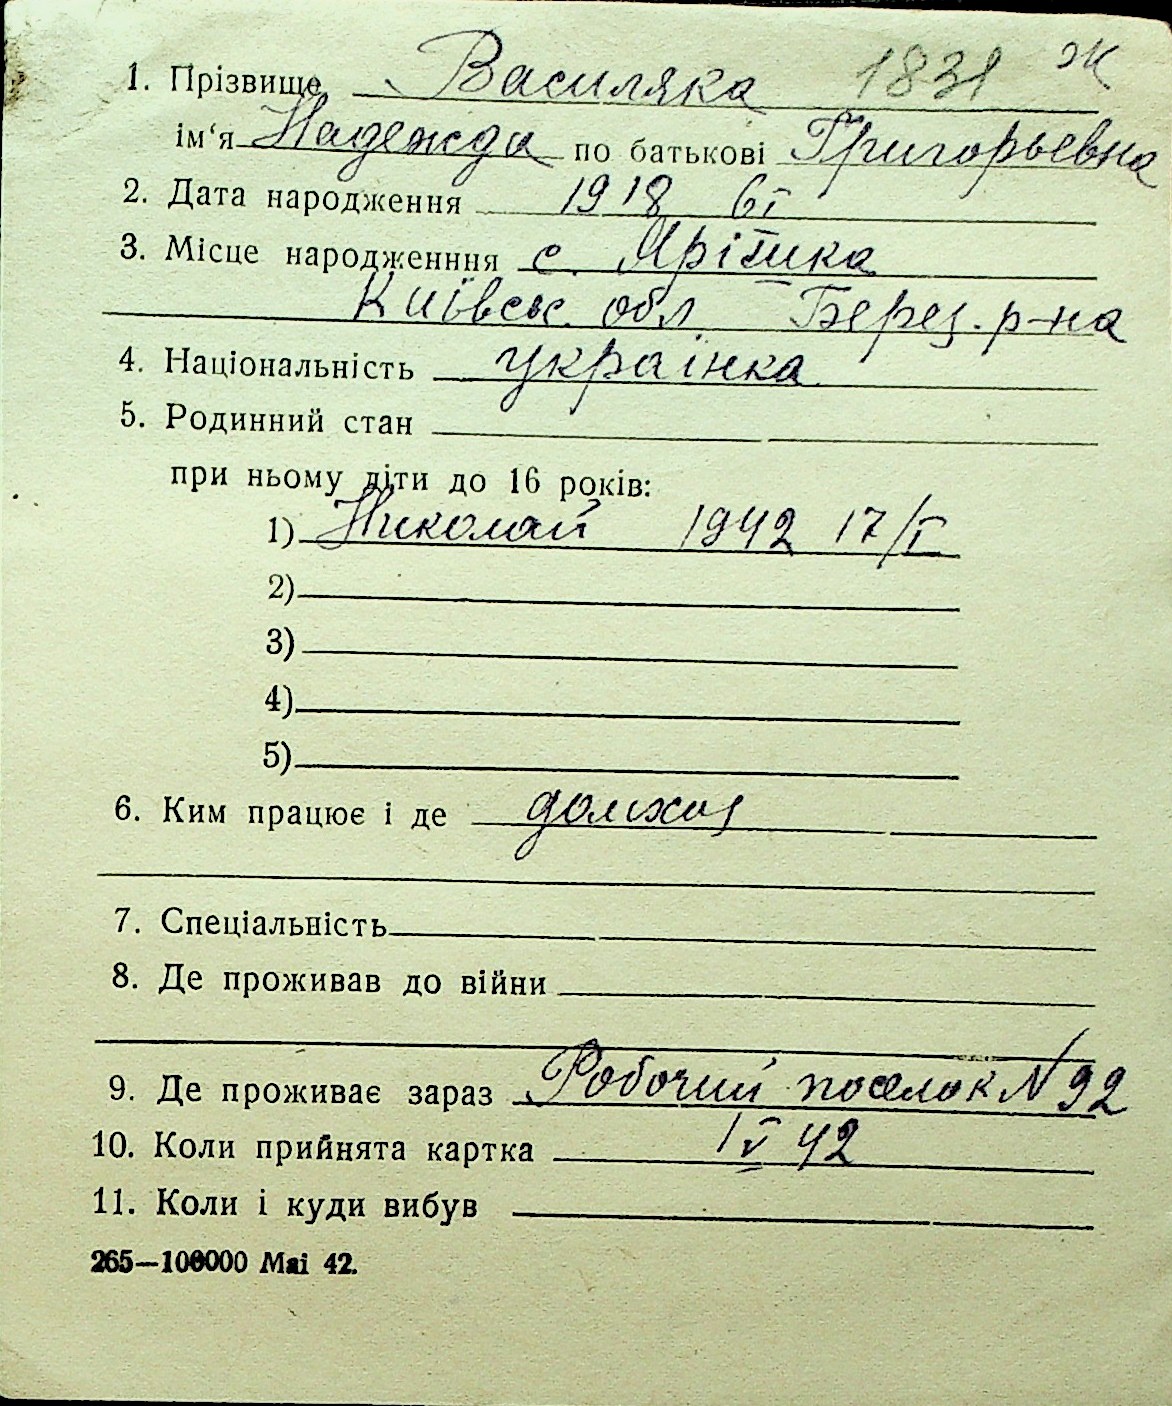 1. Прізвище Василяка 1831 Ж
ім'я Надежда по батькові Григорьевна
2. Дата народження 1918 6 I
3. Місце народженння с. Ярішка
Київськ. обл. Берез. р-на
4. Національність українка
5. Родинний стан
при ньому діти до 16 років:
1) Николай 1942 17/I
2)
3)
4)
5)
6. Ким працює і де домхоз
7. Спеціальність
8. Де проживав до війни
9. Де проживає зараз Робочий поселок N 92
10. Коли прийнята картка 1 V 42
11. Коли і куди вибув
265—100000 Маі 42.